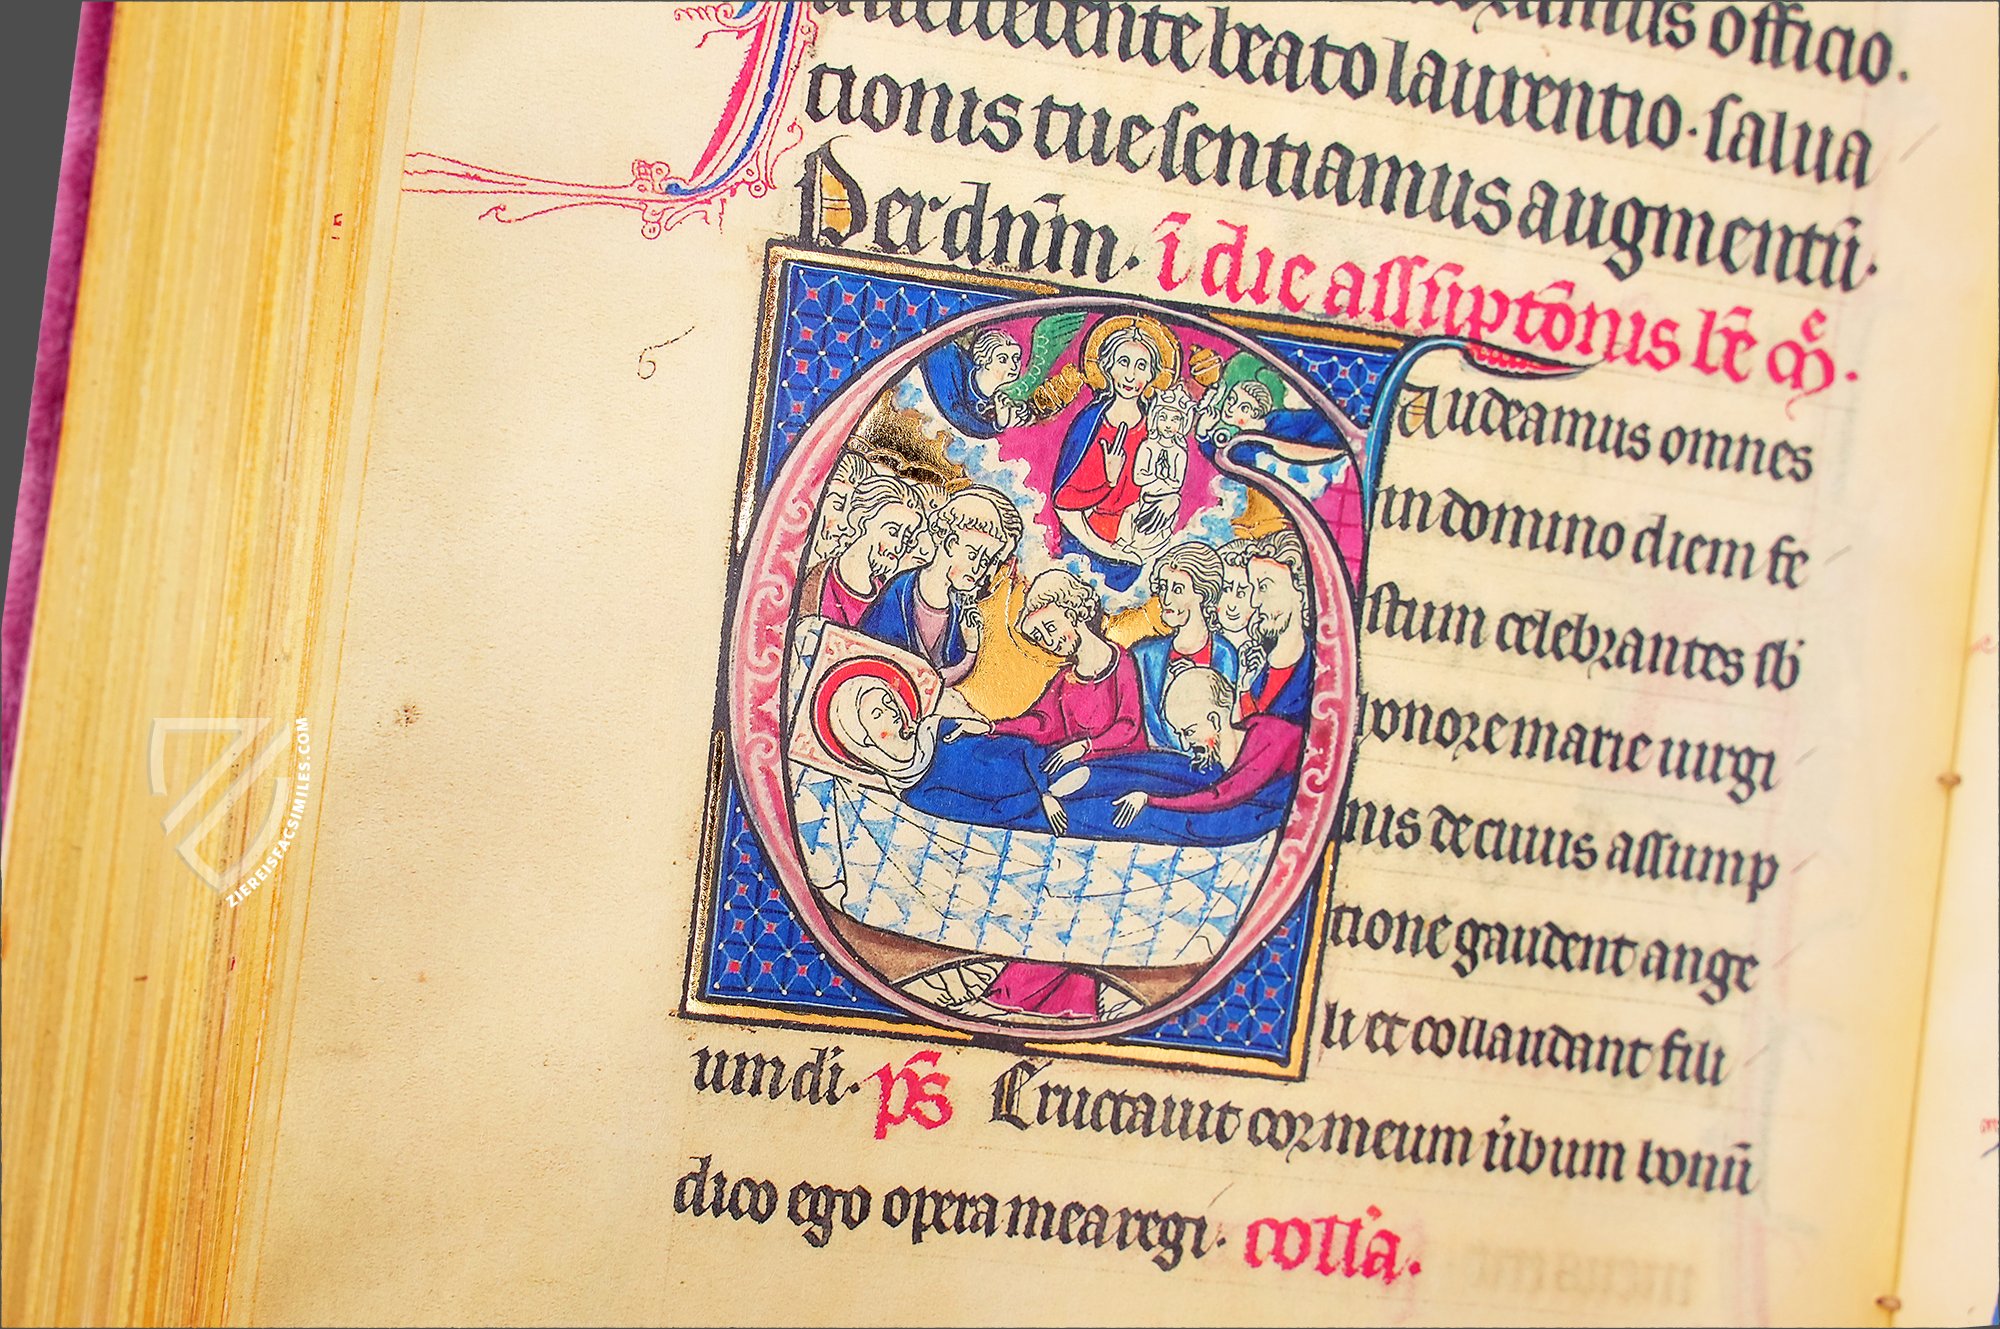 officio.
beato laurentio. salua
tionis tue sentiamus augmentū.
Per dn̄m. ī die assūptōnis bē mͤ.
Gaudeamus omnes
in domino diem fe
stum celebrantes sb̄
honore marie uirgi
nis de cuius assump
tione gaudent ange
li et collaudant fili
um di. pś Eructauit cor meum u̇bum bonū
dico ego opera mea regi. coll'a.
6
ZIEREISFACSIMILES.COM